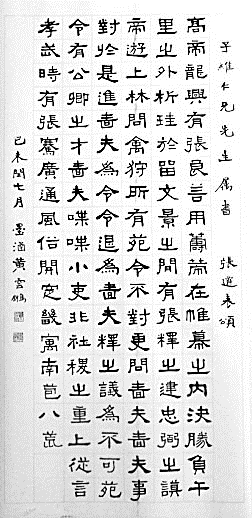 子雄仁兄先生属書 張遷表頌
高帝龍興有張良善用籌策在帷幕之內決勝負千
里之外析珪於留文景之間有張釋之建忠弼之謨
帝遊上林問禽狩所有苑令不對更問嗇夫嗇夫事
對於是進嗇夫為令令退為嗇夫釋之議為不可苑
令有公卿之才嗇夫喋喋小吏非社稷之重上從言
孝武時有張騫廣通風俗開定畿寓南苞八蛮
己未閏七月 墨涵黄雲鵬